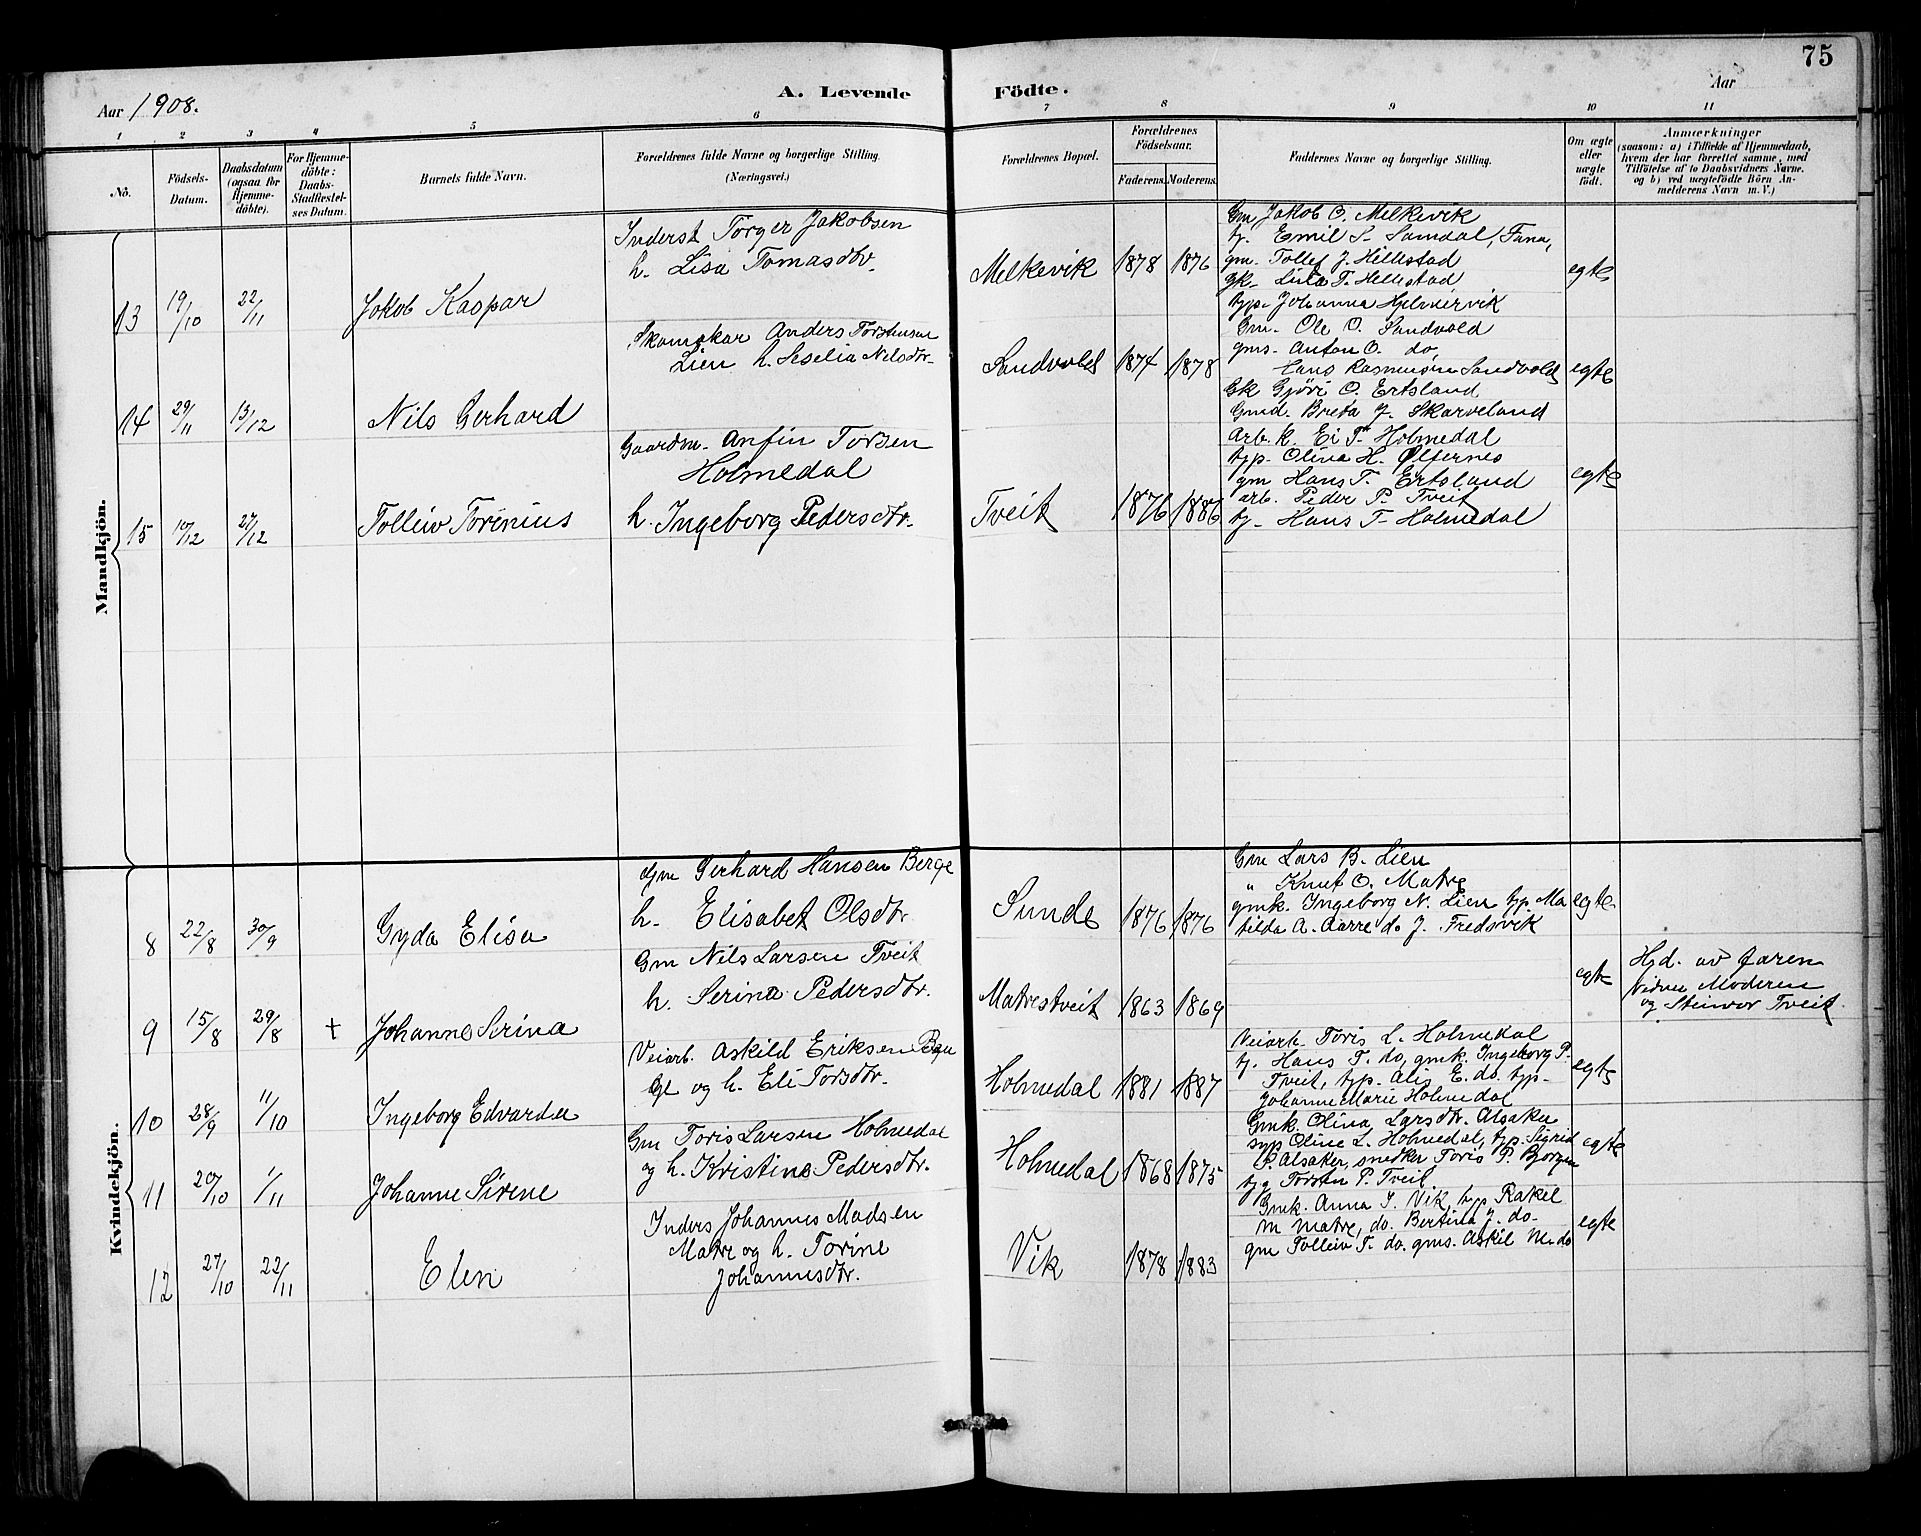 75
Aar 1908.
A. Levende Födte.
Aar
1 2 3 4 5 6 7 8 9 10 11
Nô.
Födsels-
Datum.
Daabsdatum
(ogsaa for
Hjemme-
döbte).
For Hjemme-
döbte:
Daabs-
Stadfæstel-
ses Datum.
Barnets fulde Navn.
Forældrenes fulde Navne og borgerlige Stilling.
(Næringsvei.)
Forældrenes Bopæl.
Forældrenes
Födselsaar.
Faderens. Moderens.
Faddernes Navne og borgerlige Stilling.
Om ægte
eller
uægte
födt.
Anmærkninger
(saasom: a) i Tilfælde af Hjemmedaab,
hvem der har forrettet samme, med
Tilföielse af to Daabsvidners Navne.
og b) ved uægtefödte Börn An-
melderens Navn m. V.)
Mandkjön.
13 19/10 22/11 Jakob Kaspar
Inderst Torger Jakobsen
h. Lisa Tomasdtr.
Melkevik 1878 1876
Gm. Jakob O. Melkevik
tj. Emil S. Samdal, Fana,
gm. Tollef J. Hillestad
gk. T. Hillestad
typ. Johanna
egte
14 29/11 13/12 Nils Gerhard
Skomaker Anders Torstensen
Lien h. Seselia Nilsdtr.
Sandvold 1874 1878
Gm. Ole O. Sandvold
gms. Anton O. do.
Hans Rasmussen Sandvold
Gk Gjöri O. Ertsland
Gmd. Breta J. Skarveland
egte
15 10/12 27/12 Tolleiv Torenius
Gaardm. Anfin Torsen
Holmedal
h. Ingeborg Pedersdtr.
Tveit 1876 1886
Arb. k. T. Holmedal
typ. Olina H. Ølfernes
gm Hans T. Ertsland
arb. Peder P. Tveit
tj. Hans T. Holmedal
egte
Kvindekjön.
8 22/8 30/9 Gyda Elisa
Gm Gerhard Hansen Berge
h. Elisabet Olsdtr.
Sunde 1876 1876
Gm Lars B. Lien
" Knut O. Matre
gmk. Ingeborg N. Lien typ Ma
tilda A. Aarre do J. Fredsvik
egte
9 15/8 29/8 + Johanne Serina
Gm Nils Larsen Tveit
h. Serina Pedersdtr.
Matrestveit 1863 1869
egte
Hjd. av faren
Vidner Moderen
og Steinvor Tveit.
10 28/9 11/10 Ingeborg Edvarda
Veiarb. Askild Eriksen
og h. Eli Torsdtr.
Holmedal 1881 1887
Veiarb. Toris L. Holmedal
tj. Hans T. do, gmk. Ingeborg P.
Tveit, typ. Alis E. do. typ.
Johanne Marie Holmedal
egte
11 20/10 1/11 Johanne Sirene
Gm Toris Larsen Holmedal
og h. Kristine Pedersdtr.
Holmedal 1868 1875
Gmk. Olina Larsdtr. Alsaker
syp Oline L. Holmedal, typ. Sigrid
P. Alsaker, snedker Toris P.
tyg Torsten P. Tveit
egte
12 27/10 22/11 Elen
Inders Johannes Madsen
Matre og h. Torine
Johannesdtr.
Vik 1878 1883
Gmk. Anna J. Vik, typ Rakel
M Matre, do. Bertina J. do.
gm Tolleiv T. do. gms. Askil M. do
egte